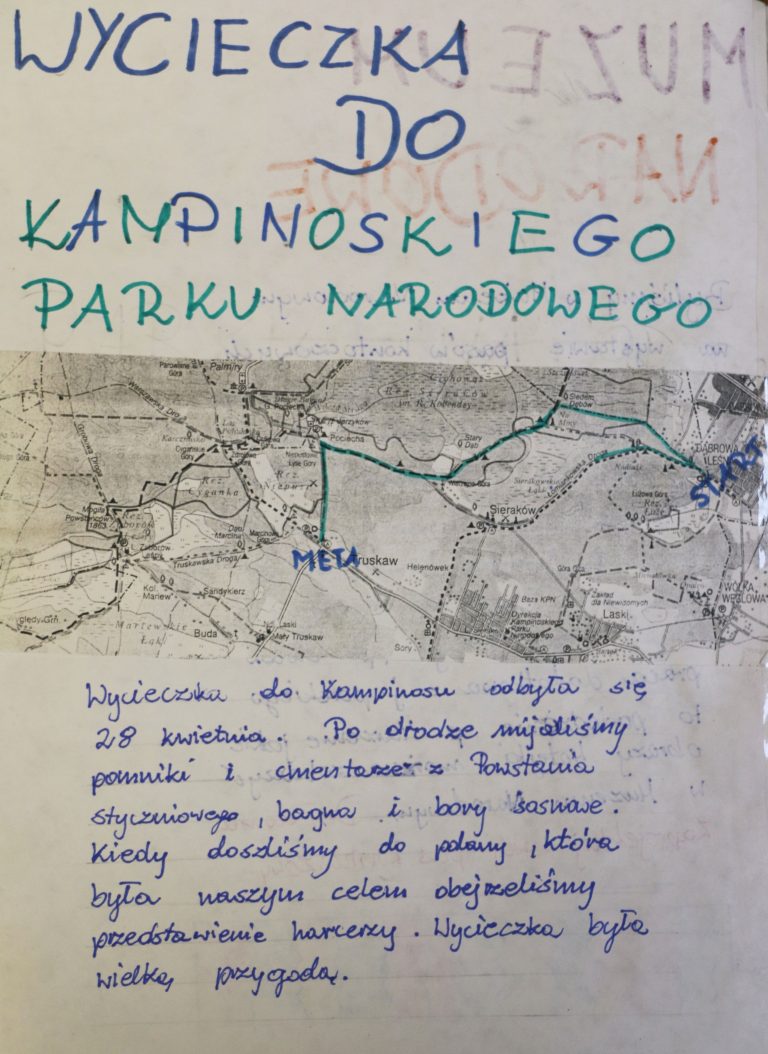 WYCIECZKA
DO
KAMPINOSKIEGO
PARKU NARODOWEGO
Palmiry
Pociecha
Stary Dąb
Siedem Dębów
DĄBROWA LEŚNA
START
Sieraków
META
Truskaw
Mogiła Powstańców 1863
Truskawska Droga
Kol. Mariew
Sandykierz
Laski
Mały Truskaw
Buda
Helenówek
Baza KPN
Dyrekcja Kampinoskiego Parku Narodowego
Zakład dla Niewidomych
Laski
WÓLKA WĘGLOWA
Wycieczka do Kampinosu odbyła się
28 kwietnia. Po drodze mijaliśmy
pomniki i cmentarze z Powstania
styczniowego, bagna i bory sosnowe.
Kiedy doszliśmy do polany, która
była naszym celem obejrzeliśmy
przedstawienie harcerzy. Wycieczka była
wielką przygodą.